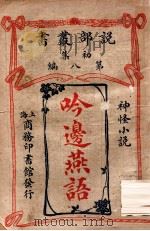 說部叢書
初集
第八編
神怪小說
吟邊燕語
上海
商務印書館發行